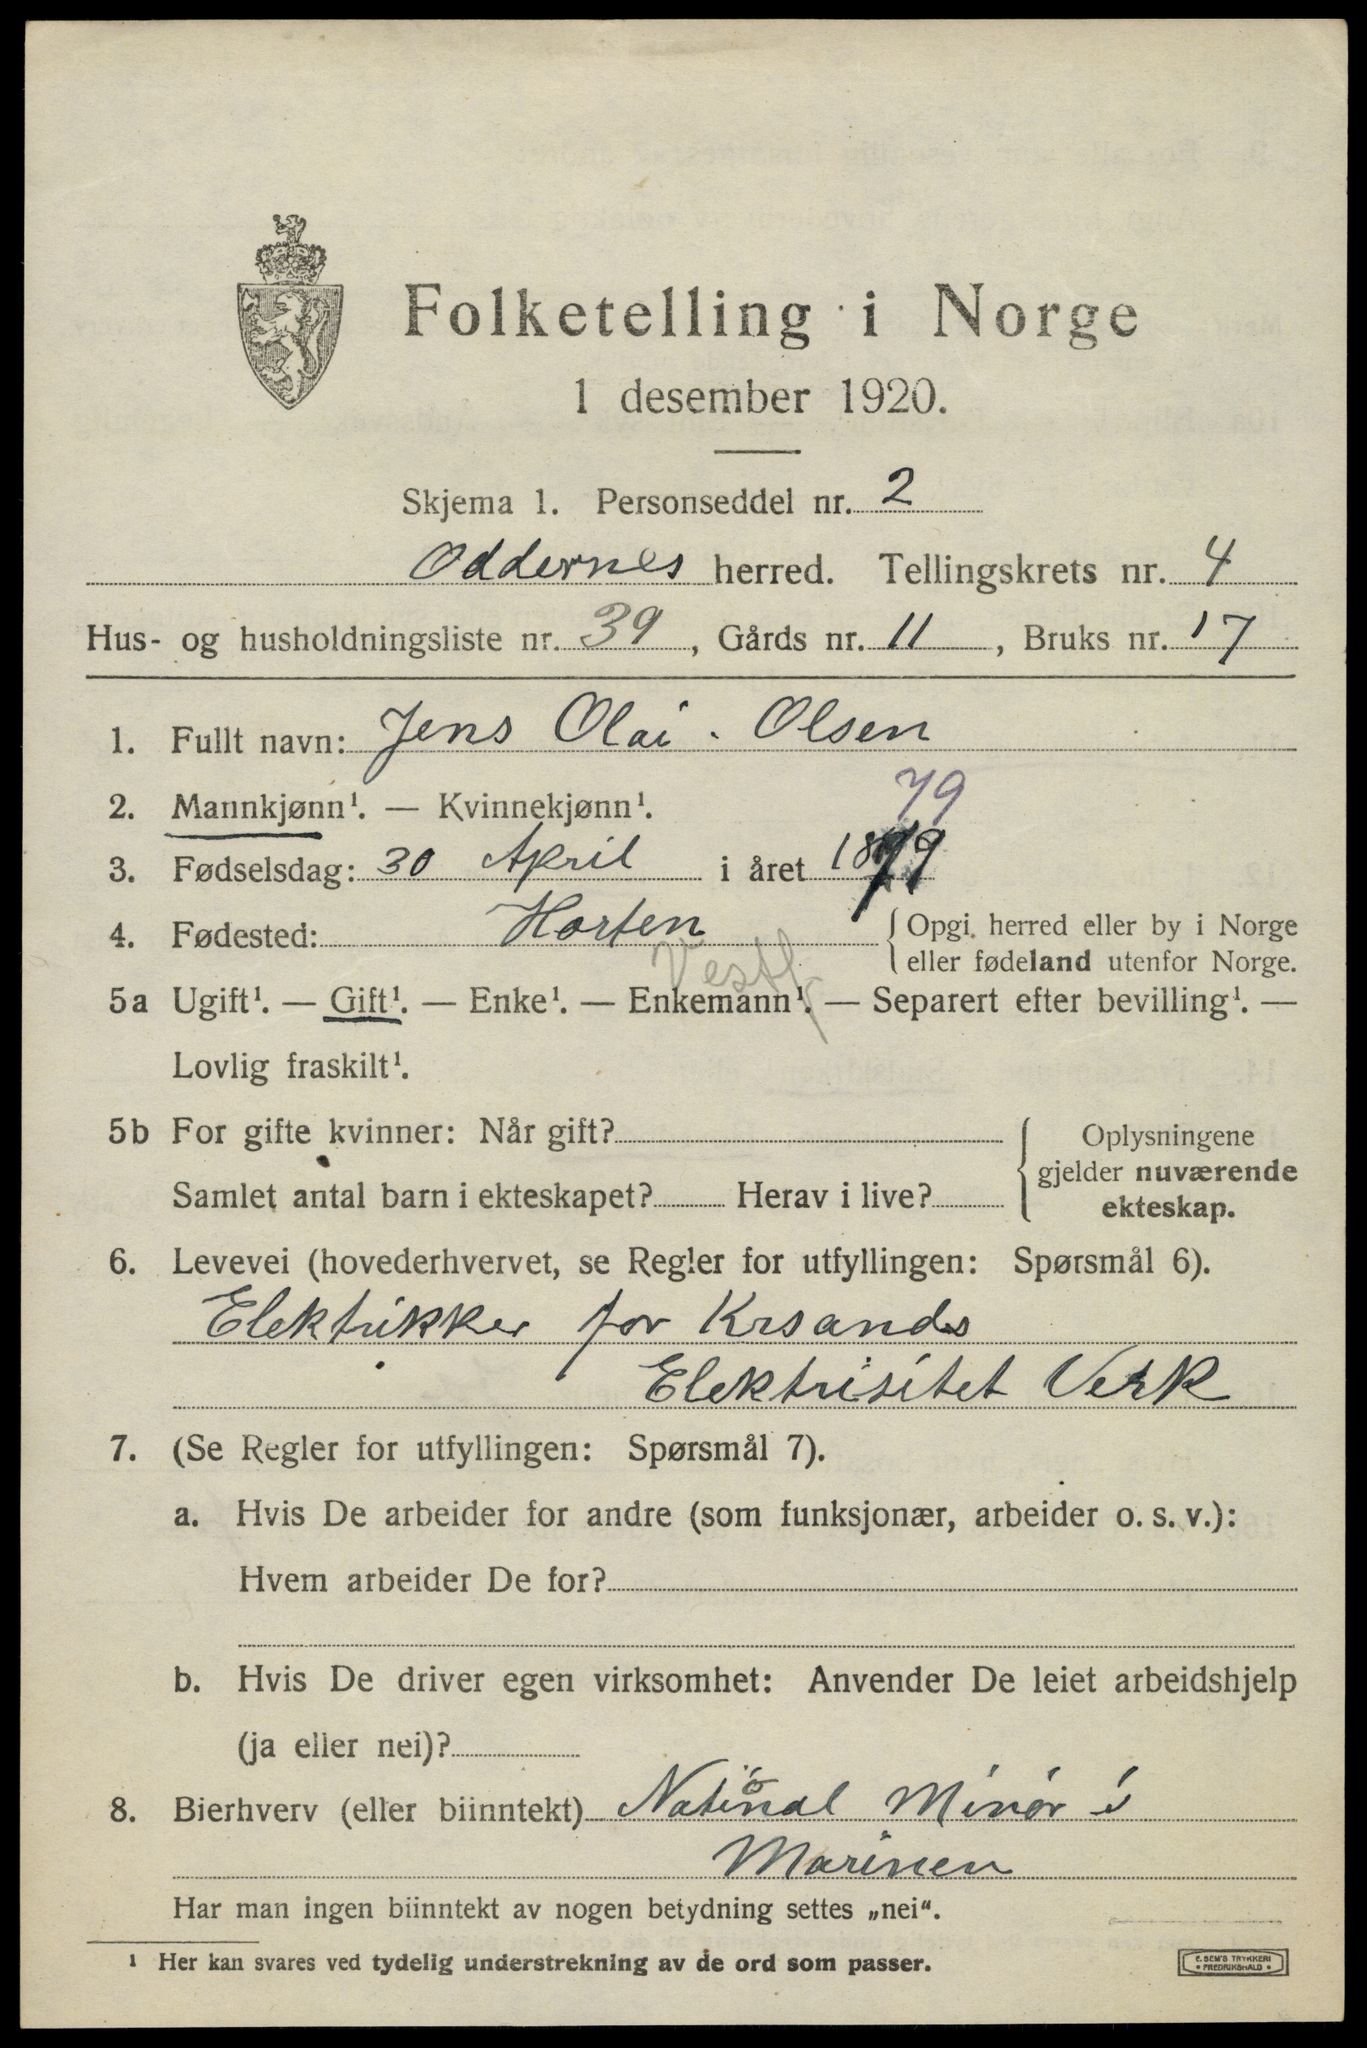 Folketelling i Norge
1 desember 1920.
Skjema 1. Personseddel nr. 2
Oddernes herred. Tellingskrets nr. 4
Hus- og husholdningsliste nr. 39, Gårds nr. 11, Bruks nr. 17
1. Fullt navn: Jens Olai Olsen
2. Mannkjønn¹. — Kvinnekjønn¹.
79
3. Fødselsdag: 30 April i året 1879
4. Fødested: Horten { Opgi herred eller by i Norge
eller fødeland utenfor Norge.
Vestf
5a Ugift¹. — Gift¹. — Enke¹. — Enkemann¹. — Separert efter bevilling¹. —
Lovlig fraskilt¹.
5b For gifte kvinner: Når gift?
Samlet antal barn i ekteskapet? Herav i live?
{ Oplysningene
gjelder nuværende
ekteskap.
6. Levevei (hovederhvervet, se Regler for utfyllingen: Spørsmål 6).
Elektrikker for Krsands
Elektrisitet Verk
7. (Se Regler for utfyllingen: Spørsmål 7).
a. Hvis De arbeider for andre (som funksjonær, arbeider o. s. v.):
Hvem arbeider De for?
b. Hvis De driver egen virksomhet: Anvender De leiet arbeidshjelp
(ja eller nei)?
8. Bierhverv (eller biinntekt) Natiönal Minör i
Marinen
Har man ingen biinntekt av nogen betydning settes „nei“.
¹ Her kan svares ved tydelig understrekning av de ord som passer.
E. SEM'S TRYKKERI
• FREDRIKSHALD •